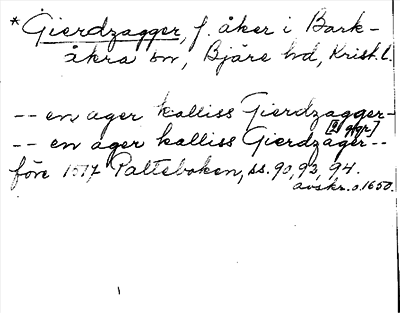 *Gierdzagger, f. åker i Bark-
åkra sn, Bjäre hd, Krist. l.
-- en ager kalliss Gierdzagger-
[2 ggr]
-- en ager kalliss Gierdzager--
före 1517 Palteboken, ss. 90, 93, 94.
avskr. o. 1650.